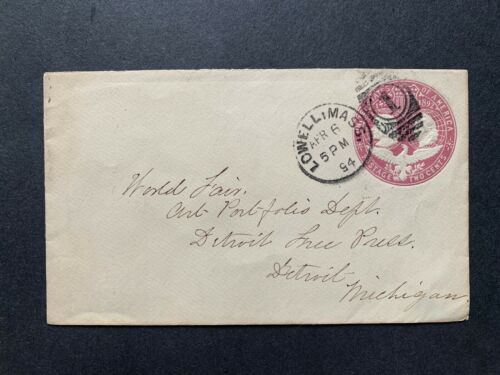 LOWELL, MASS.
APR 6
5 PM
94
OF AMERICA
POSTAGE TWO CENTS
World Fair.
Art Portfolio Dept.
Detroit Free Press.
Detroit
Michigan